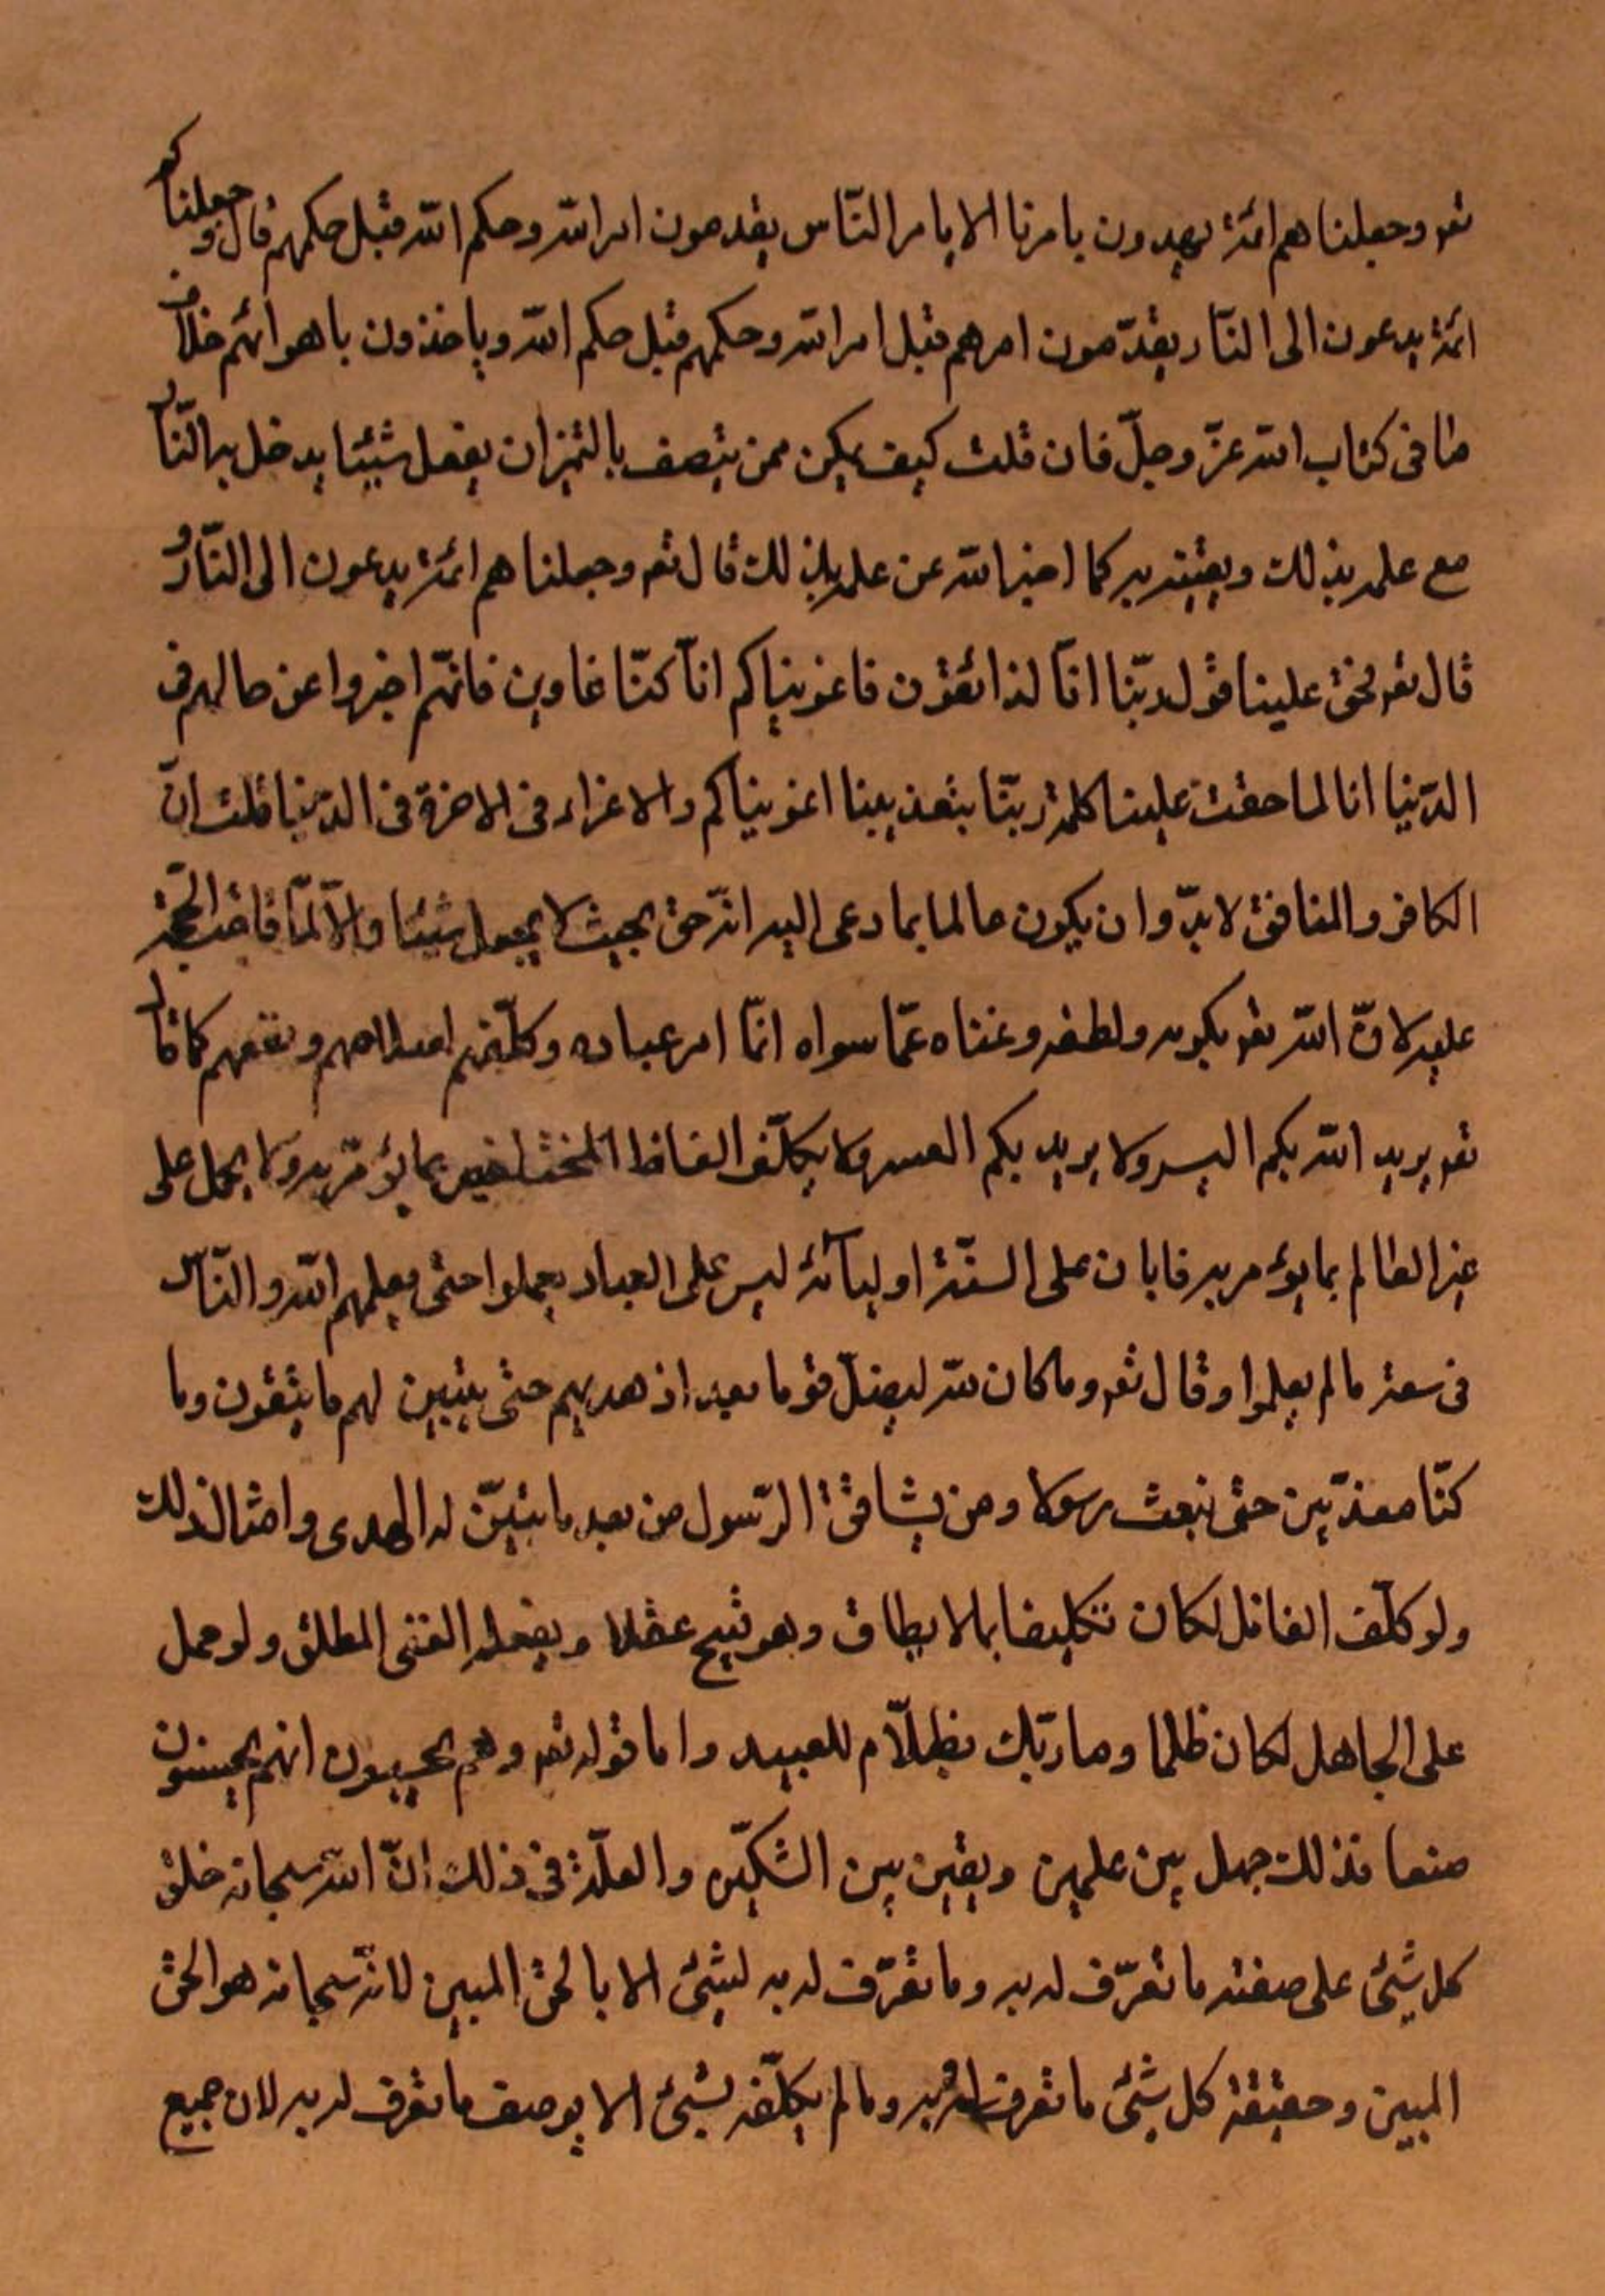 تعو وجعلناهم ائمة يهدون بامرنا الا بامر النّاس يقدمون امر الله وحكم الله قبل حكمهم قال وجعلناكم
ائمة يدعون الى النّار يقدّمون امرهم قبل امر الله وحكمهم قبل حكم الله وياخذون باهوائهم خلاف
ما فى كتاب الله عزّ وجلّ فان قلت كيف يمكن ممن يتصف بالتميز ان يفعل شيئا يدخل به النّار
مع علمه بذلك ويقينه به كما اخبر الله عن علمه بذلك قال تعو وجعلناهم ائمة يدعون الى النّار و
قال تعو فحق علينا قول ربّنا انّا لذائقون فاغويناكم انّا كنّا غاوين فانّهم اخبروا عن حالهم فى
الدّنيا انا لما حقت علينا كلمة ربّنا بتعذيبنا اغويناكم والاغراء فى الاخرة فى الدّنيا قلت انّ
الكافر والمنافق لا بدّ وان يكون عالما بما دعى اليه انّه حق بحيث لا يجهل شيئا والّا لمّا قامت الحجّة
عليه لانّ الله تعو بكرمه ولطفه وغناه عمّا سواه انّما امر عباده وكلّفهم لصلاحهم ونفعهم كما قال
تعو يريد الله بكم اليسر ولا يريد بكم العسر ولا يكلّف الغافل بما يؤمر به ولا يحمل على
غير العالم بما يؤمر به فابان على السنّة اوليآئه ليس على العباد يعملوا حتى يعلمهم الله والنّاس
فى سعة ما لم يعلموا وقال تعو وما كان الله ليضلّ قوما بعد اذ هديهم حتى يتبين لهم ما يتقون وما
كنّا معذّبين حتى نبعث رسولا ومن يشاقق الرّسول من بعد ما تبيّن له الهدى وامثال ذلك
ولو كلّف الغافل لكان تكليفا بما لا يطاق وهو قبيح عقلا ويفعله الغنى المطلق ولو حمل
على الجاهل لكان ظلما وما ربّك بظلّام للعبيد واما قوله تعو وهم يحسبون انهم يحسنون
صنعا فذلك جهل بين علمين ويقين بين الشكّين والعلّة فى ذلك انّ الله سبحانه خلق
كل شيئ على صفة ما تعرّف له به وما تعرّف له به لشيئ الا بالحق المبين لانّه سبحانه هو الحق
المبين وحقيقة كل شيئ ما تعرف له به وما لم يكلّفه بشيئ الا بوصف ما تعرف له به لان جميع